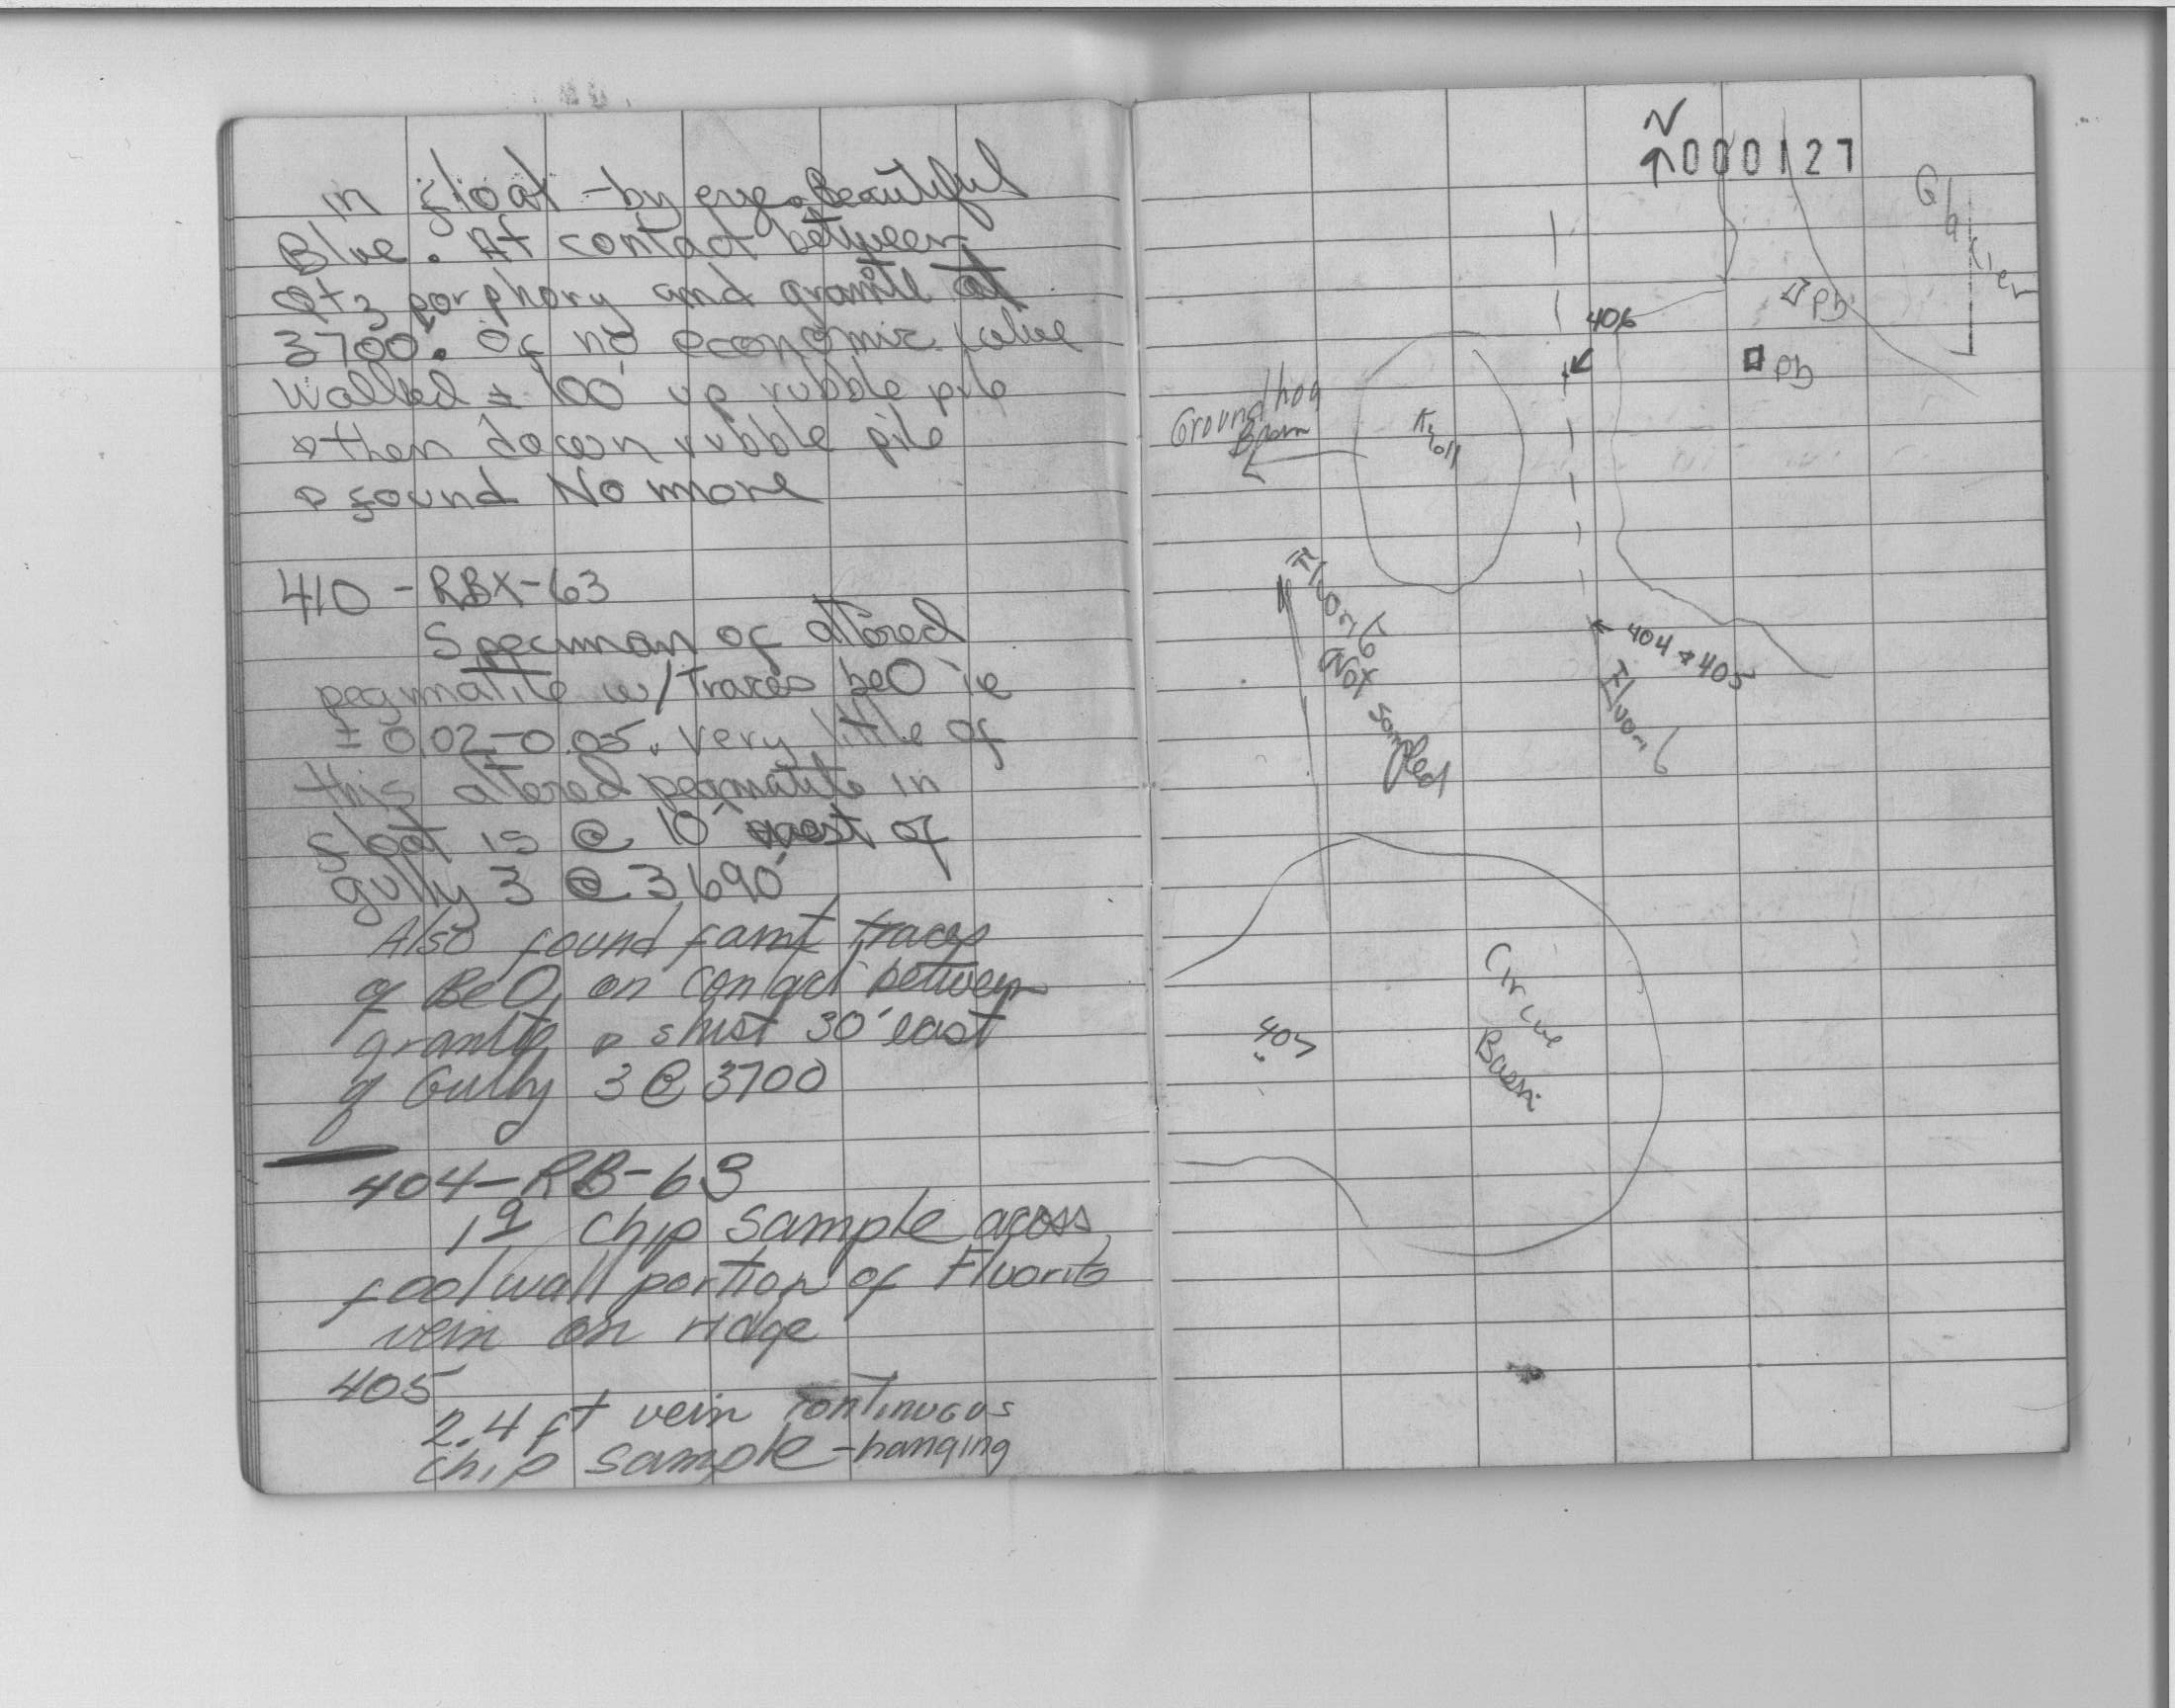 in float - by eye. Beautiful
Blue. At contact between
Qtz porphory and granite at
3700'. Of no economic value
Walked ± 100' up rubble pile
& then down rubble pile
& found No more
410 - RBX-63
Speciman of altered
pegmatite w/ Traces beO ie
± 0.02-0.05. Very little of
this altered pegmatite in
float is @ 10' west of
gully 3 @ 3,690'
Also found faint traces
of BeO, on contact between
granite & shist 30' east
of Gully 3 @ 3700
404-RB-63
chip sample acoss
footwall portion of Fluorite
vein on ridge
405
2.4 ft vein continuous
chip sample - hanging
N
000127
Glacier
406
Pb
Pb
Groundhog
Basin
Knoll
Fluorite
Not sampled
404 & 405
Fluorite
Cirque
Basin
407